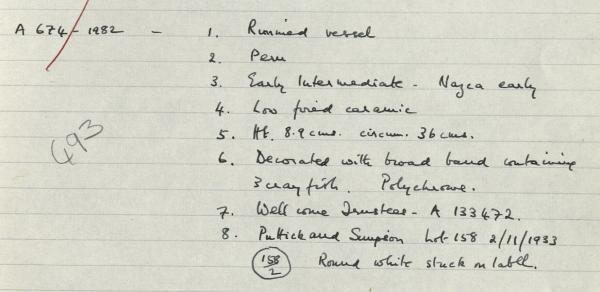 A 674-1982 - 1. Rimmed vessel
2. Peru
3. Early Intermediate - Nazca early
4. Low fired ceramic
5. Ht. 8.9 cms. circum. 36 cms.
6. Decorated with broad band containing
3 crayfish. Polychrome.
7. Wellcome Trustees - A 133472.
8. Puttick and Simpson Lot 158 2/11/1933
158/2 Round white stuck on label.
693